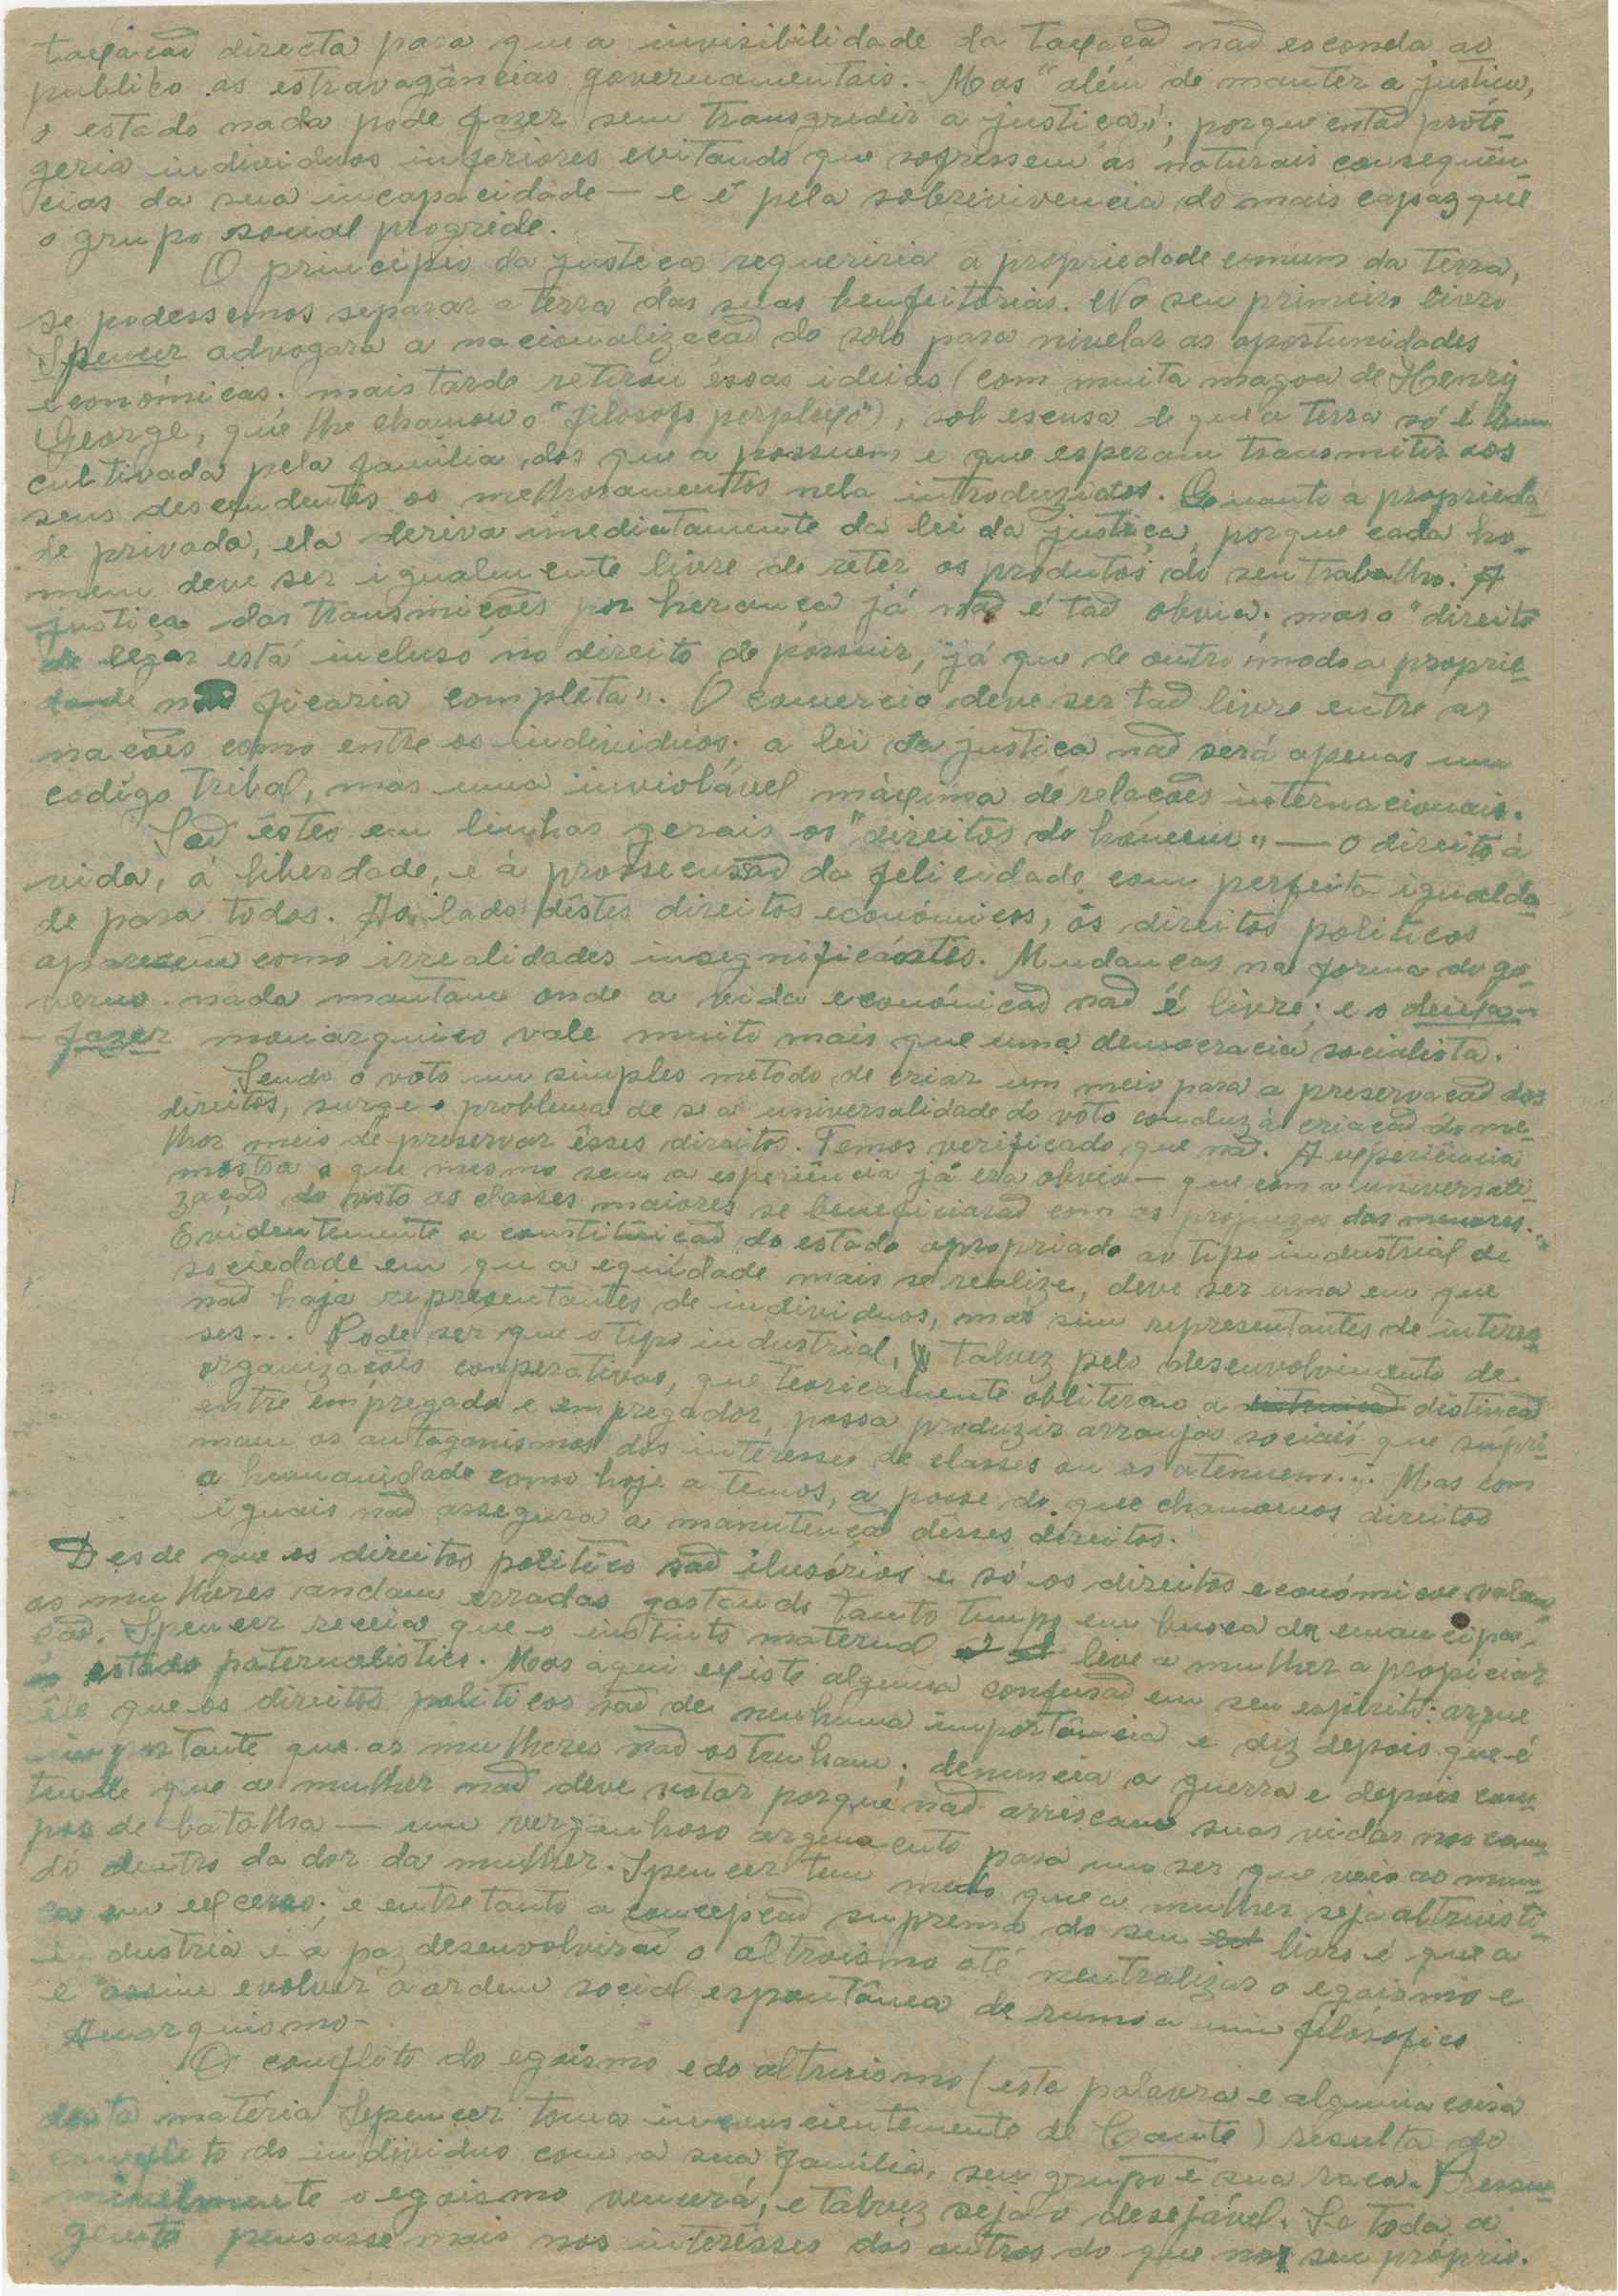 taxação directa para que a invisibilidade da taxação não esconda ao
publico as estravagâncias governamentais. Mas "além de manter a justiça,
o estado nada pode fazer sem transgredir a justiça"; porque então prote-
geria individuos inferiores evitando que sofressem as naturais consequên-
cias da sua incapacidade — e é pela sobrevivencia do mais capaz que
o grupo social progride.
O principio da justiça requeriria a propriedade comum da terra,
se podessemos separar a terra das suas benfeitorias. No seu primeiro livro
Spencer advogara a nacionalização do solo para nivelar as oportunidades
económicas; mais tarde retirou essas ideias (com muita magoa de Henry
George, que lhe chamou o "filosofo perplexo"), sob escusa de que a terra só é bem
cultivada pela familia dos que a possuem e que esperam transmitir aos
seus descendentes os melhoramentos nela introduzidos. Quanto à proprieda-
de privada, ela deriva imediatamente da lei da justiça, porque cada ho-
mem deve ser igualmente livre de reter os produtos do seu trabalho. A
justiça das transmições por herança já não é tão obvia; mas o "direito
de legar está incluso no direito de possuir, já que de outro modo a proprie-
dade não ficaria completa". O comercio deve ser tão livre entre as
nações como entre os individuos; a lei da justiça não será apenas um
codigo tribal, mas uma inviolável máxima de relações internacionais.
São êstes em linhas gerais os "direitos do homem" — o direito à
vida, à liberdade, e à prossecusão da felicidade com perfeita igualda-
de para todos. Ao lado dêstes direitos económicos, os direitos politicos
aparecem como irrealidades insegnificantes. Mudanças na forma do go-
verno nada montam onde a vida económicaõ não é livre; e o deixa-
-fazer monarquico vale muito mais que uma democracia socialista.
Sendo o voto um simples metodo de criar um meio para a preservação dos
direitos, surge o problema de se a universalidade do voto conduz à criação do me-
lhor meio de preservar êsses direitos. Temos verificado que não. A experiência
mostra o que mesmo sem a esperiência já era obvio — que com a universali-
zação do voto as classes maiores se beneficiarão com os prejuizos das menores.
Evidentemente a constituição do estado apropriado ao tipo industrial de
sociedade em que a equidade mais se realize, deve ser uma em que
não haja representantes de individuos, mas sim representantes de interes-
ses... Pode ser que o tipo industrial, talvez pelo desenvolvimento de
organizações cooperativas, que teoricamente obliteram a distinção
entre empregado e empregador, possa produzir arranjos sociais que supri-
mam os antagonismos dos interesses de classes ou os atenuem... Mas com
a humanidade como hoje a temos, a posse do que chamamos direitos
iguais não assegura a manutenção dêsses direitos.
Desde que os direitos politico são ilusórios e só os direitos económicos valem,
as mulheres andam erradas gastando tanto tempo em busca da emancipa-
ção. Spencer receia que o instinto maternal leve a mulher a propiciar
o estado paternalistico. Mas aqui existe alguma confusão em seu espirito: argue
êle que os direitos politicos são de nenhuma importância e diz depois que é
importante que as mulheres não os tenham; denuncia a guerra e depois con-
tende que a mulher não deve votar porque não arriscam suas vidas nos cam-
pos de batalha — um vergonhoso argumento para um ser que veio ao mun-
do dentro da dor da mulher. Spencer tem medo que a mulher seja altruisti-
ca em excesso; e entretanto a concepção suprema do seu livro é que a
industria e a paz desenvolvirão o altroismo até neutralizar o egoismo e
e assim evolver a ordem social espontânea de rumo a um filósofico
Anarquismo.
O conflito do egoismo e do altruismo (esta palavra e alguma coisa
desta matéria Spencer toma inconscientemente de Comte) resulta do
conflito do individuo com a sua familia, seu grupo e sua raça. Presu-
mivelmente o egoismo vencerá, e talvez seja o desejável. Se toda a
gente pensasse mais nos interêsses dos outros do que nos seu próprio.